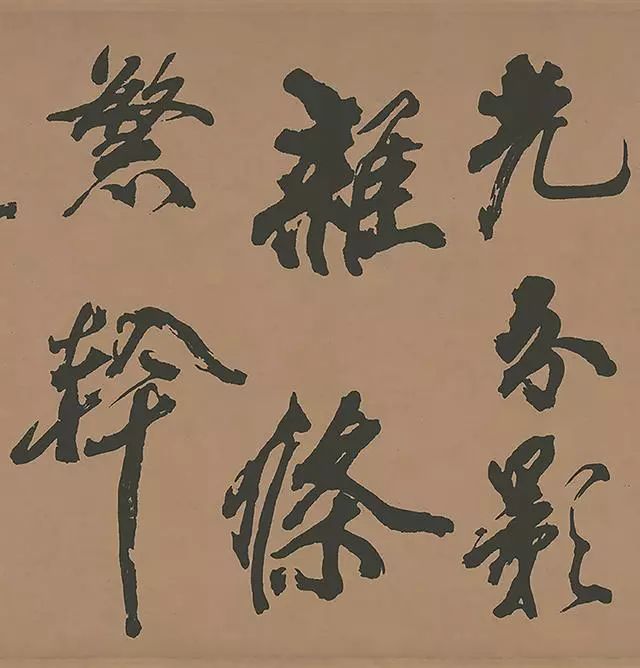 光分影
雜條
繁幹